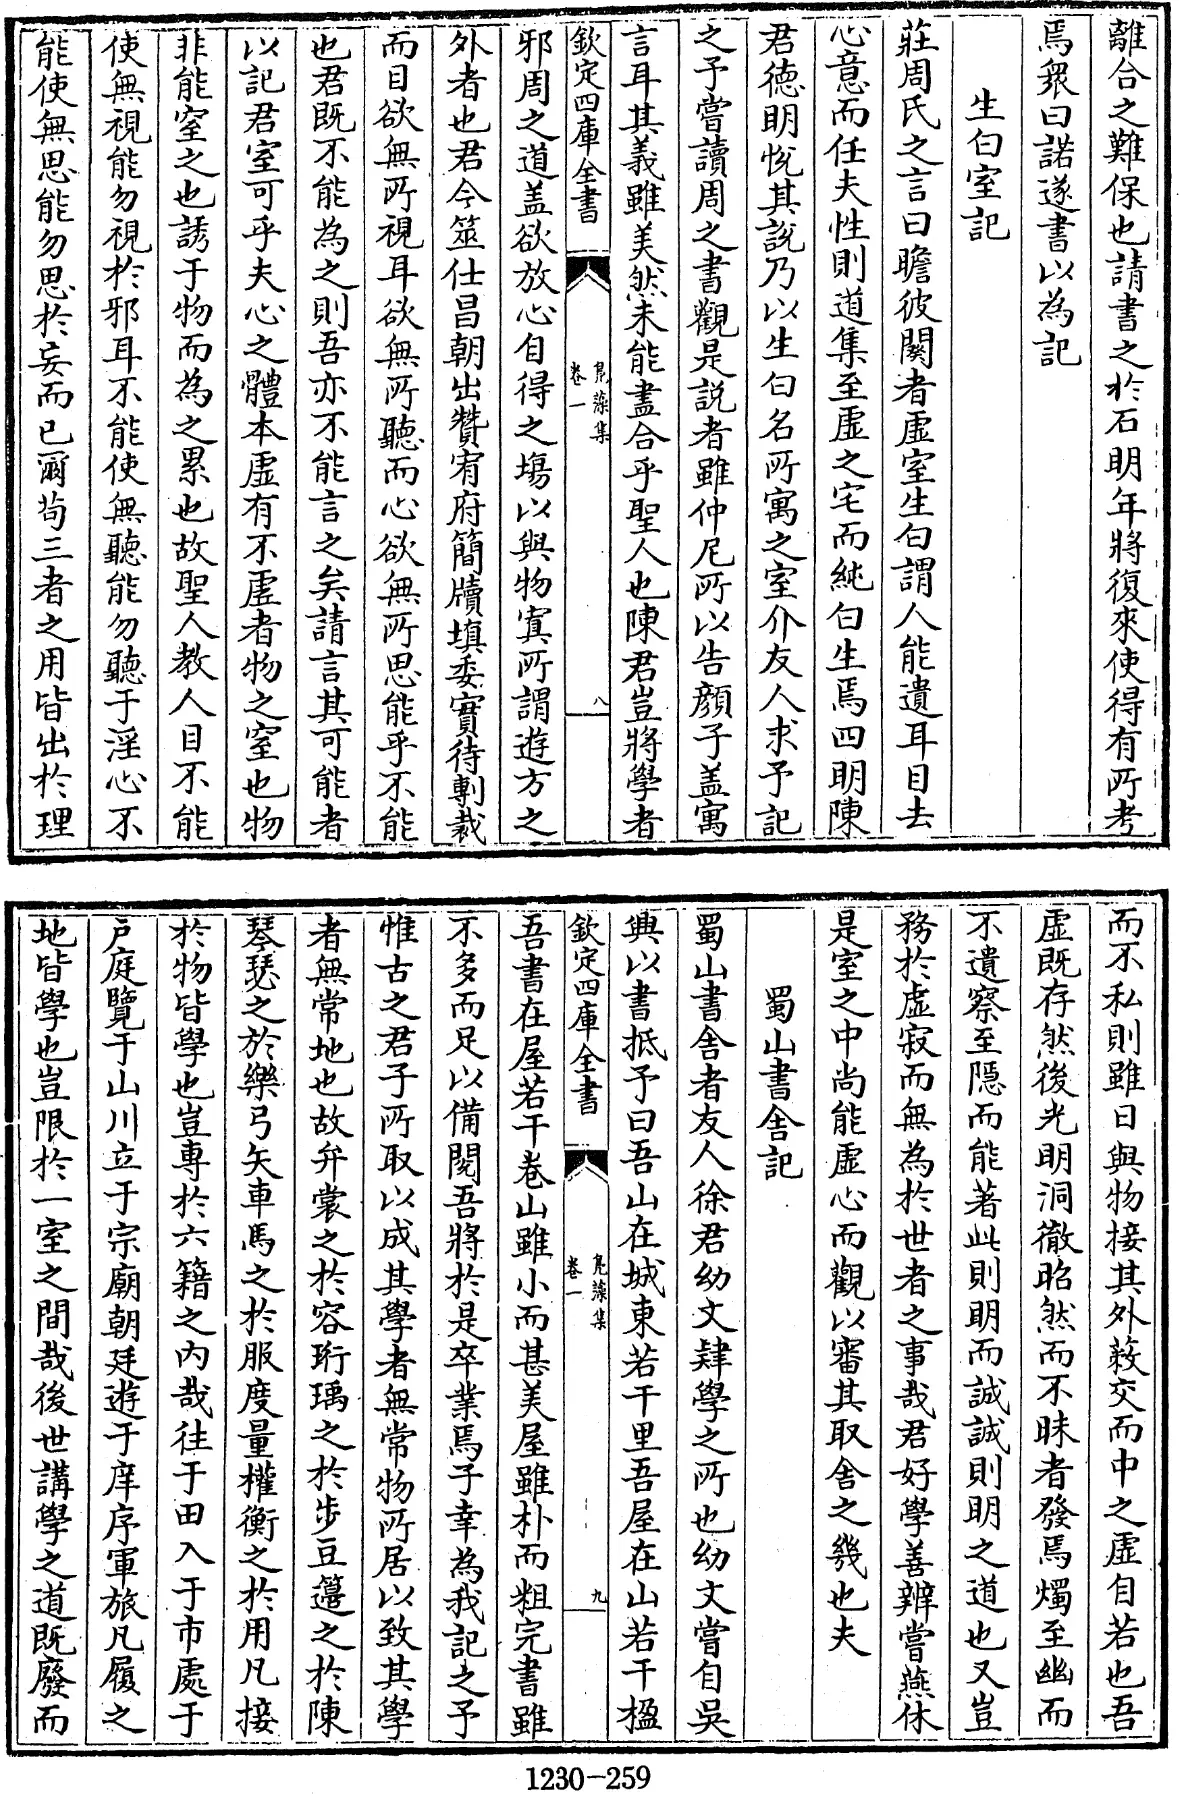 離合之難保也請書之於石明年將復來使得有所考
焉衆曰諾遂書以為記
生白室記
莊周氏之言曰瞻彼闋者虛室生白謂人能遺耳目去
心意而任夫性則道集至虛之宅而純白生焉四明陳
君德明悅其說乃以生白名所寓之室介友人求予記
之予嘗讀周之書觀是說者雖仲尼所以告顔子盖寓
言耳其義雖美然未能盡合乎聖人也陳君豈將學者
欽定四庫全書
鳬藻集
卷一
八
邪周之道盖欲放心自得之塲以與物寘所謂遊方之
外者也君今筮仕昌朝出贊宥府簡牘填委實待剸裁
而目欲無所視耳欲無所聽而心欲無所思能乎不能
也君既不能為之則吾亦不能言之矣請言其可能者
以記君室可乎夫心之體本虛有不虛者物之窒也物
非能窒之也誘于物而為之累也故聖人教人目不能
使無視能勿視於邪耳不能使無聽能勿聽于淫心不
能使無思能勿思於妄而已爾茍三者之用皆出於理
而不私則雖日與物接其外蔽交而中之虛自若也吾
虛既存然後光明洞徹昭然而不昧者發焉燭至幽而
不遺察至隱而能著此則明而誠誠則明之道也又豈
務於虛寂而無為於世者之事哉君好學善辨嘗燕休
是室之中尚能虛心而觀以審其取舍之幾也夫
蜀山書舍記
蜀山書舍者友人徐君幼文肄學之所也幼文嘗自吳
興以書抵予曰吾山在城東若干里吾屋在山若干楹
欽定四庫全書
鳬藻集
卷一
九
吾書在屋若干卷山雖小而甚美屋雖朴而粗完書雖
不多而足以備閱吾將於是卒業焉子幸為我記之予
惟古之君子所取以成其學者無常物所居以致其學
者無常地也故弁裳之於容珩瑀之於步豆籩之於陳
琴瑟之於樂弓矢車馬之於服度量權衡之於用凡接
於物皆學也豈專於六籍之内哉往于田入于市處于
戸庭覽于山川立于宗廟朝廷遊于庠序軍旅凡履之
地皆學也豈限於一室之間哉後世講學之道既廢而
1230-259